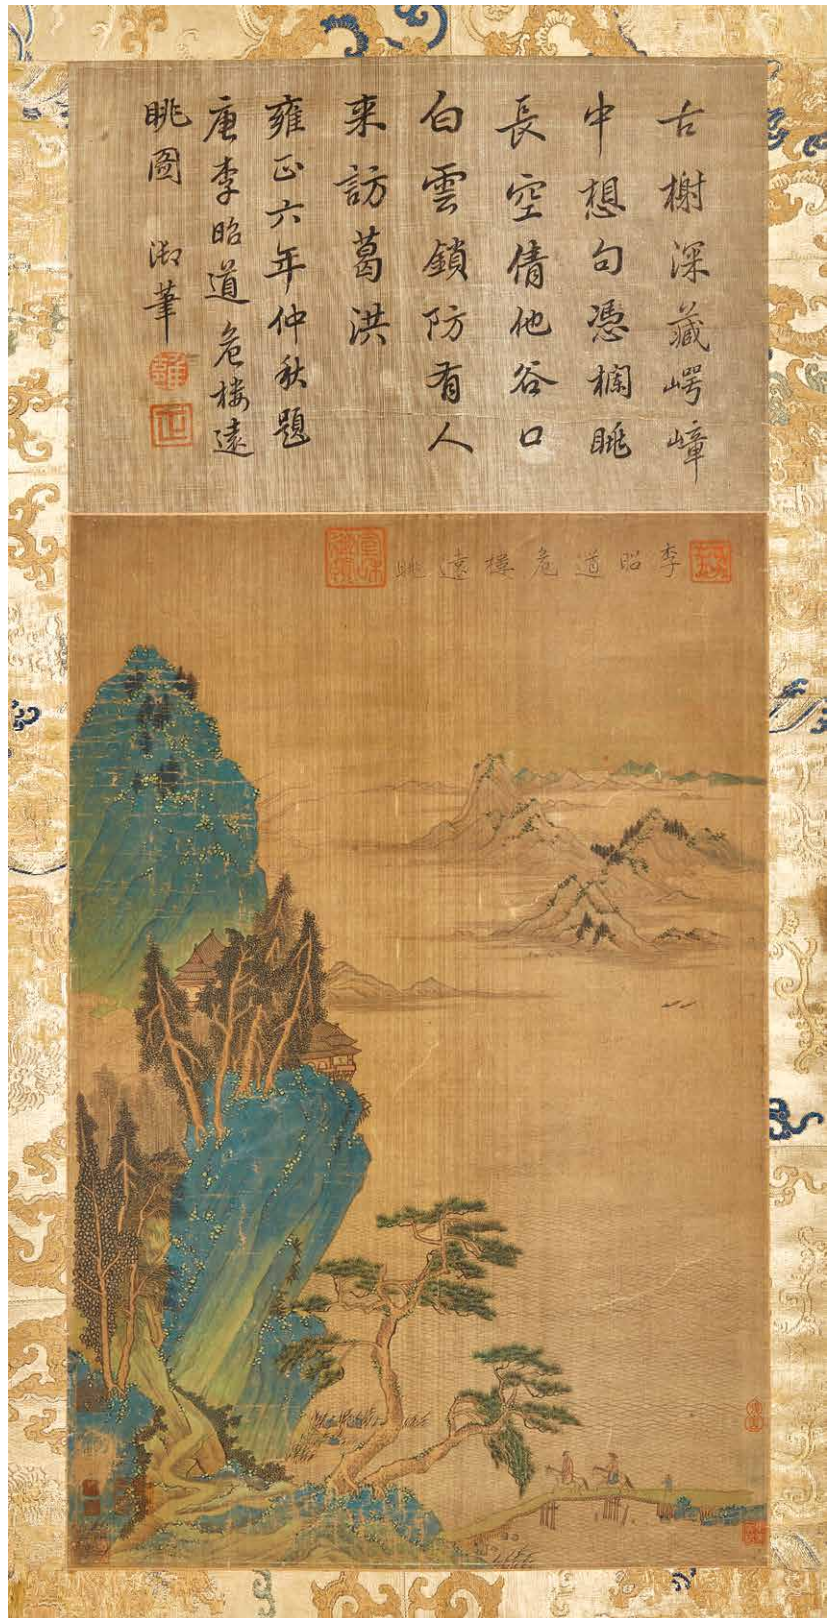 古榭深藏崿嶂
中想句憑欄眺
長空倩他谷口
白雲鎖防有人
来訪葛洪
雍正六年仲秋題
唐李昭道危楼遠
眺圖 御筆
雍
正
李昭道危樓遠眺